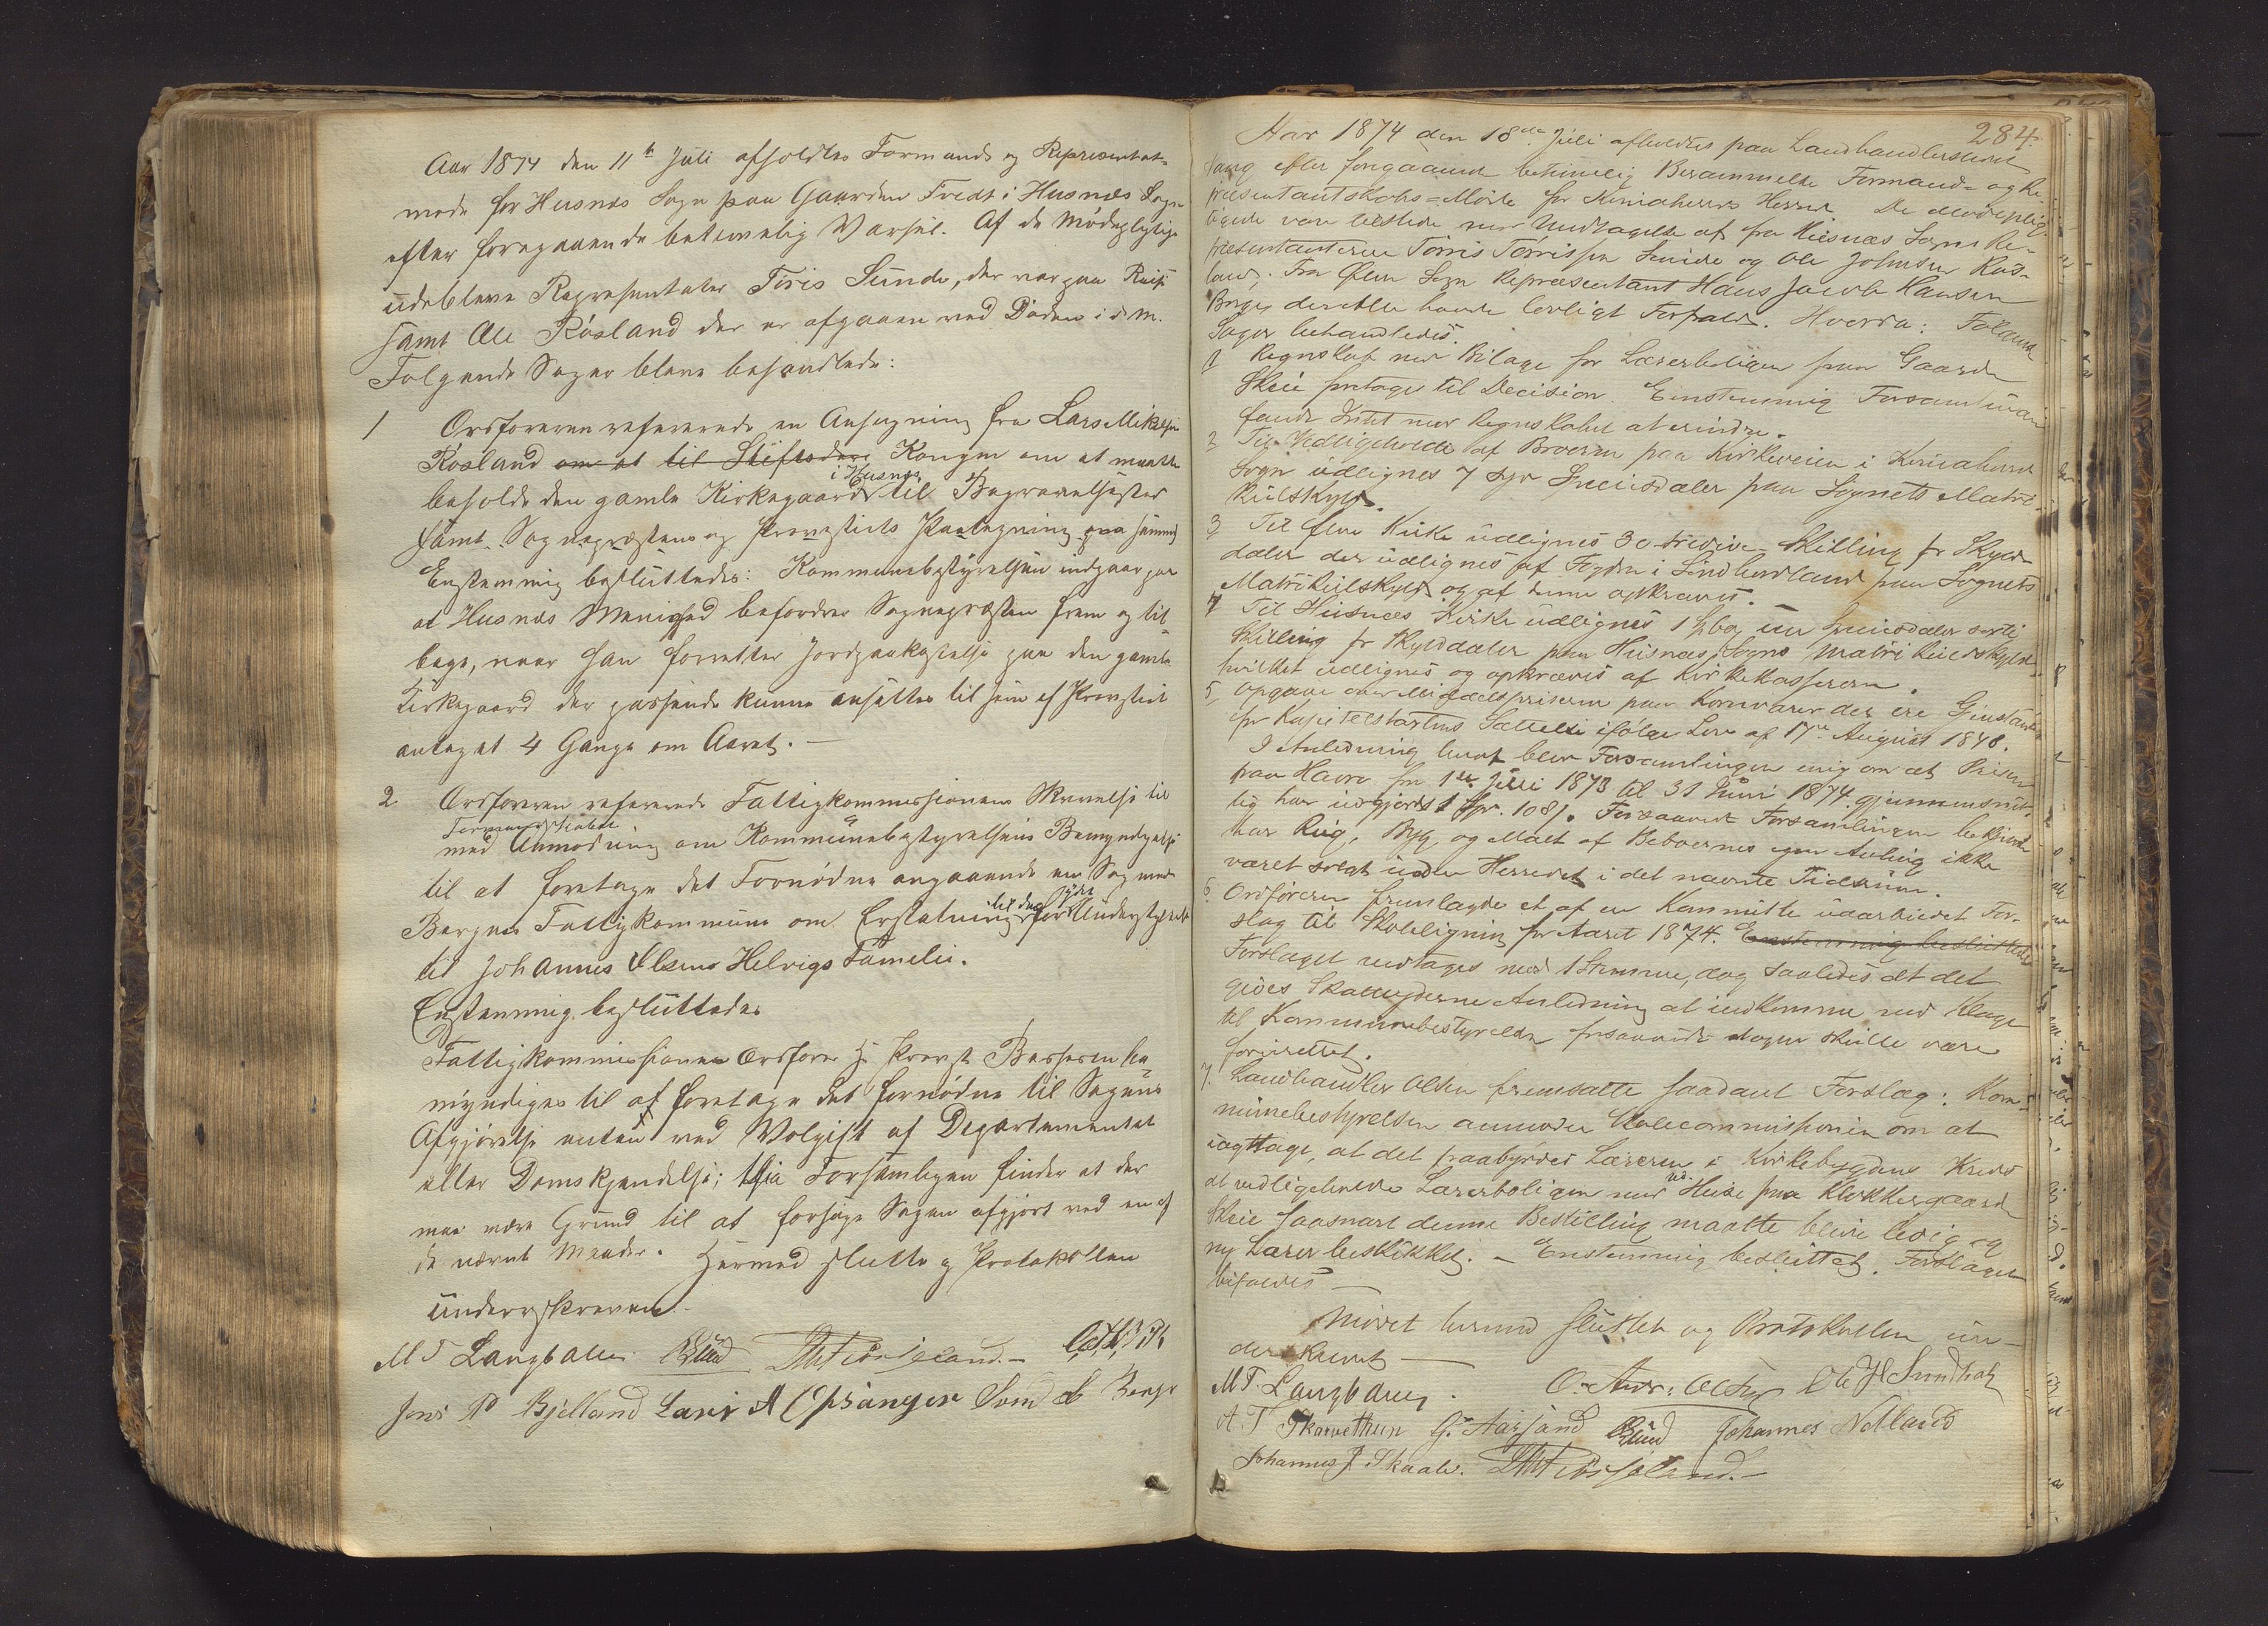 Aar 1874 den 11te Juli afholdtes Formands og Representat-
møde for Husnæs Sogn paa Gaarden Tvedt i Husnæs Sogn
efter foregaaende betimelig Varsel. Af de Mødepligtige
udebleve Representater Tóris Sunde, der var paa Reise
samt Ole Røsland der er afgaaen ved Døden i d. M.
Følgende Sager bleve behandlede:
1 Ordføreren refererede en Ansøgning fra Lars Mikelsen
Røsland om at til Stiftsdere Kongen om at maatte
i Husnæs
beholde den gamle Kirkegaard til Begravelsested
samt Sognepræstens og Provstiets Paategning paa samme
Enstemmig besluttedes: Kommunebestyrelsen indgaar paa
at Husnæs Menighed befordrer Sognepræsten frem og til-
bage, naar han forretter Jordpaakastelse paa den gamle
Kirkegaard der passende kunne ansættes til sum af Provstiet
antaget 4 Gange om Aaret. —
2 Ordføreren refererede Fattigkommissionens Skrivelse til
Formandskabet
med Anmodning om Kommunebestyrelsens Bemyndigelse
til at foretage det Fornødne angaaende en Sag mod
Bergens Fattigkommune om Erstatning til den for ydet Understøttelse
til Johannes Olsens Helvigs Familie.
Enstemmig besluttedes
Fattigkommissionens Ordfører Hr Provst Bassøen be-
myndiges til at foretage det fornødne til Sagens
Afgjørelse enten ved Volgift af Departementet
eller Domskjendelse; thi Forsamlingen finder at der
maa være Grund til at forsøge Sagen afgjort ved en af
de nævnte Maader. Hermed sluttet og Protokollen
underskreven.
M T Langballe
Jens P Bjelland Lars A Opsanger Svend L Berge
284.
Aar 1874 den 18de Juli afholdtes paa Landhandlerstedet
Vaag efter foregaaende betimelig Berammelse Formands- og Re-
præsentantskabs-Møde for Kvinnherreds Herred. De mødeplig-
tigede vare tilstede med Undtagelse af fra Husnæs Sogns Re-
præsentanterne Tørris Tørrissen Sunde og Ole Johnsen Røs-
land; Fra Ølve Sogn Repræsentant Hans Jacob Hansen
Berge, der alle havde lovligt Forfald. Hvorda: Følgende
Sager behandledes.
1 Regnskab med Bilage for Lærerboligen paa Gaarden
Skeie foretoges til Decision. Einstemmig Forsamlingen
fandt Intet mod Regnskabet at erindre.
2 Til Vedligeholde af Broerne paa Kirkeveien i Kvinnherred
Sogn udlignes 7 syv Speciesdaler paa Sognets Matri-
kulskyld.
3 Til Ølve Kirke udlignes 30 tredive Skilling pr Skyld-
daler der udlignes af Fogden i Søndhordland paa Sognets
Matrikulskyld og af denne opkræves.
4 Til Husnæs Kirke udlignes 1 Spd 60 en Speciesdaler sexti
Skilling pr Skylddaler paa Husnæs Sogns Matrikulskyld
hvilket udlignes og opkræves af Kirkekassereren.
5 Opgave over Middelspriserne paa Kornvarer der ere Gjenstand
for Kapitelstaxtens Sættelse ifølge Lov af 17de August 1848.
I Anledning heraf blev Forsamlingen enig om at Prisen
paa Havre fra 1ste Juli 1873 til 31 Juni 1874 gjennemsnit-
lig har udgjordt 1 Spd. 108 s. Forsaavidt Forsamlingen bekjendt
har Rug, Byg og Malt af Beboernes egen Avling ikke
været solgt inden Herredet i det nævnte Tidsrum.
6 Ordføreren fremlagde et af en Kommitte udarbeidet For-
slag til Skoleligning for Aaret 1874. Enstemmig besluttedes
Forslaget vedtages med 1 Stemme, dog saaledes at det
gives Skatteyderne Anledning at indkomme med Klage
til Kommunebestyrelsen forsaavidt Nogen skulle være
forurettet.
7. Landhandler Olsen fremsatte saadant Forslag: Kom-
munebestyrelsen anmoder Skolecommissionen om at
iagttage, at det paabyrdes Læreren i Kirkebygdens Kreds
at vedligeholde Lærerboligen med Huse paa Klokkergaard
Skeie saasnart denne Bestilling maatte blive ledig og
ny Lærer beskikket. — Enstemmig besluttet. Forslaget
bifaldes
Mødet hermed sluttet og Protokollen un-
derskrevet —
M T. Langballe. O. Andr: Olsen Ole H Sundhol
A. T Skarvethun G. Aarsand Johannes Netland
Johannes J Skaale.